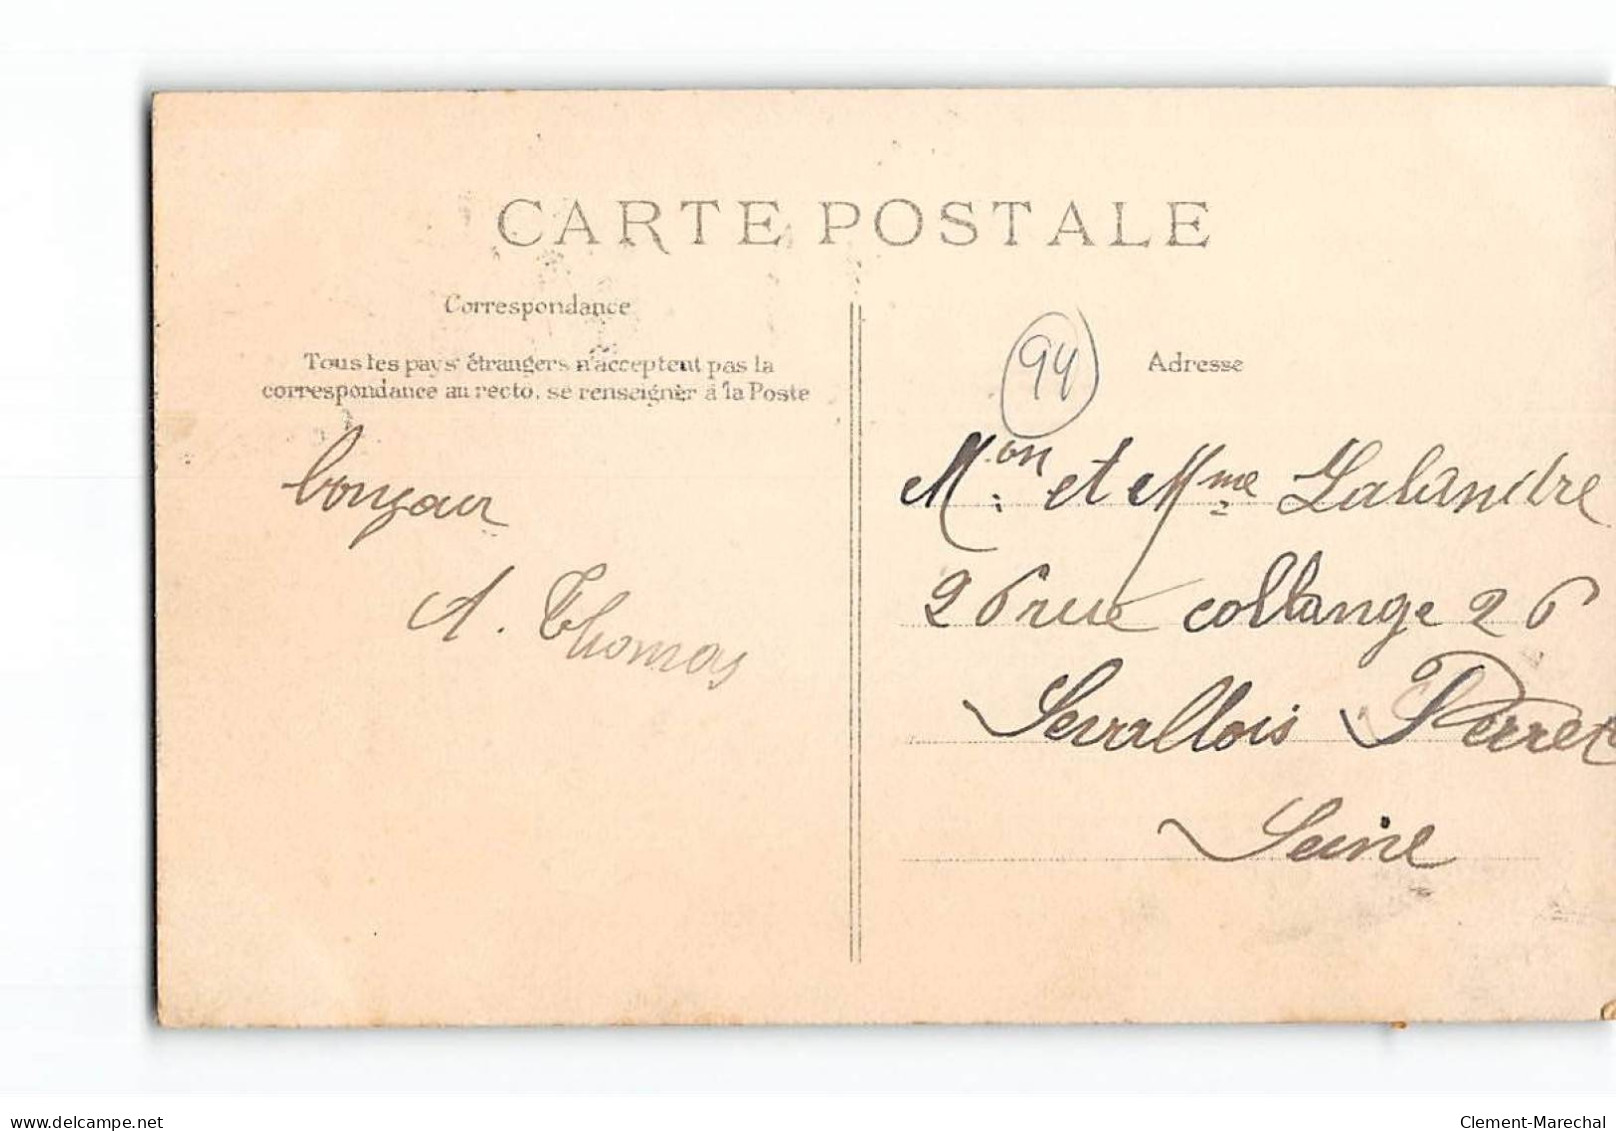 CARTE POSTALE
Correspondance
Tous les pays étrangers n'acceptent pas la
correspondance au recto, se renseigner à la Poste
bonjour
A. Thomas
94
Adresse
Mon et Mme Lalandre
26 rue collange 26
Levallois Perret
Seine
www.delcampe.net
Clement-Marechal